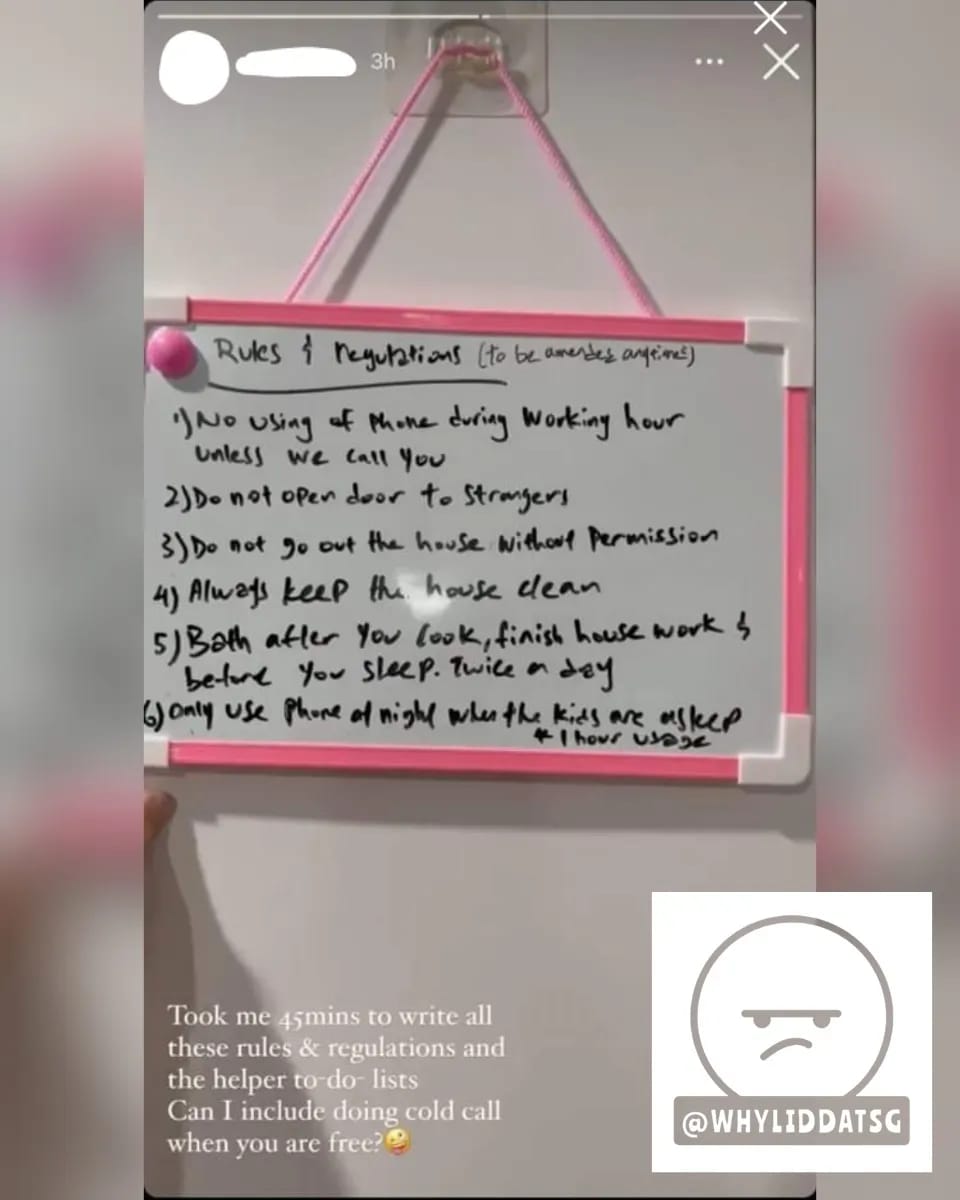 3h
Rules & regulations (to be amended anytime)
1) No using of phone during working hour
unless we call you
2) Do not open door to strangers
3) Do not go out the house without permission
4) Always keep the house clean
5) Bath after you cook, finish house work &
before you sleep. Twice a day
6) only use phone at night when the kids are asleep
* 1 hour usage
Took me 45mins to write all
these rules & regulations and
the helper to-do- lists
Can I include doing cold call
when you are free?🤪
@WHYLIDDATSG